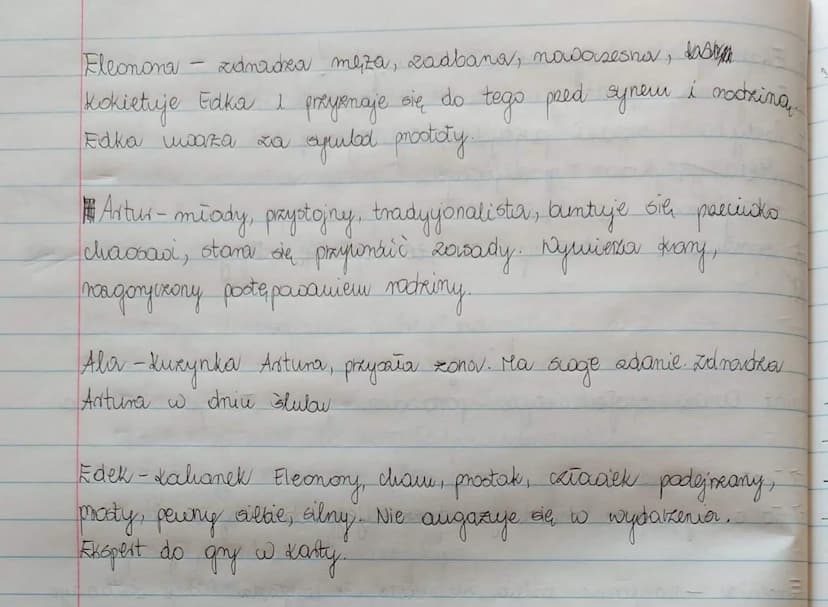 Eleonora – zdradza męża, zadbana, nowoczesna,
kokietuje Edka i przyznaje się do tego przed synem i rodziną.
Edka uważa za symbol prostoty.
Artur – młody, przystojny, tradycjonalista, buntuje się przeciwko
chaosowi, stara się przywrócić zasady. Wymierza kary,
rozgoryczony postępowaniem rodziny.
Ala – kuzynka Artura, przyszła żona. Ma swoje zdanie. Zdradza
Artura w dniu ślubu
Edek – kochanek Eleonory, cham, prostak, człowiek podejrzany,
prosty, pewny siebie, silny. Nie angażuje się w wydarzenia.
Ekspert do gry w karty.